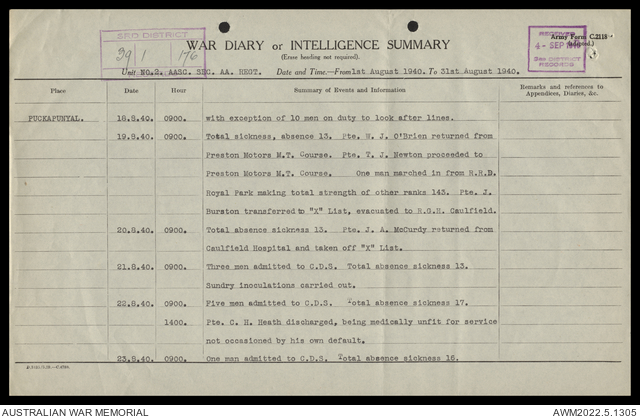 3RD DISTRICT
39 / 1 / 176
WAR DIARY or INTELLIGENCE SUMMARY
(Erase heading not required).
Army Form C.2118
RECEIVED
4 - SEP 1940
3RD DISTRICT
RECORDS
Unit NO.2. AASC. SEC. AA. REGT. Date and Time.—From 1st August 1940. To 31st August 1940.
Place Date Hour Summary of Events and Information Remarks and references to Appendices, Diaries, &c.
PUCKAPUNYAL. 18.8.40. 0900. with exception of 10 men on duty to look after lines.
19.8.40. 0900. Total sickness, absence 13. Pte. W. J. O'Brien returned from
Preston Motors M.T. Course. Pte. T. J. Newton proceeded to
Preston Motors M.T. Course. One man marched in from R.R.D.
Royal Park making total strength of other ranks 143. Pte. J.
Burston transferred to "X" List, evacuated to R.G.H. Caulfield.
20.8.40. 0900. Total absence sickness 13. Pte. J. A. McCurdy returned from
Caulfield Hospital and taken off "X" List.
21.8.40. 0900. Three men admitted to C.D.S. Total absence sickness 13.
Sundry inoculations carried out.
22.8.40. 0900. Five men admitted to C.D.S. Total absence sickness 17.
1400. Pte. C. H. Heath discharged, being medically unfit for service
not occasioned by his own default.
23.8.40. 0900. One man admitted to C.D.S. Total absence sickness 16.
AUSTRALIAN WAR MEMORIAL AWM2022.5.1305